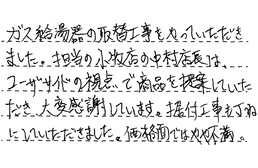 ガス給湯器の取替工事をやっていただき
ました。担当の小牧店の中村店長は、
ユーザーサイドの視点で商品を提案していた
だき大変感謝しています。据付工事も丁ねい
にしていただきました。価格面ではやや不満。